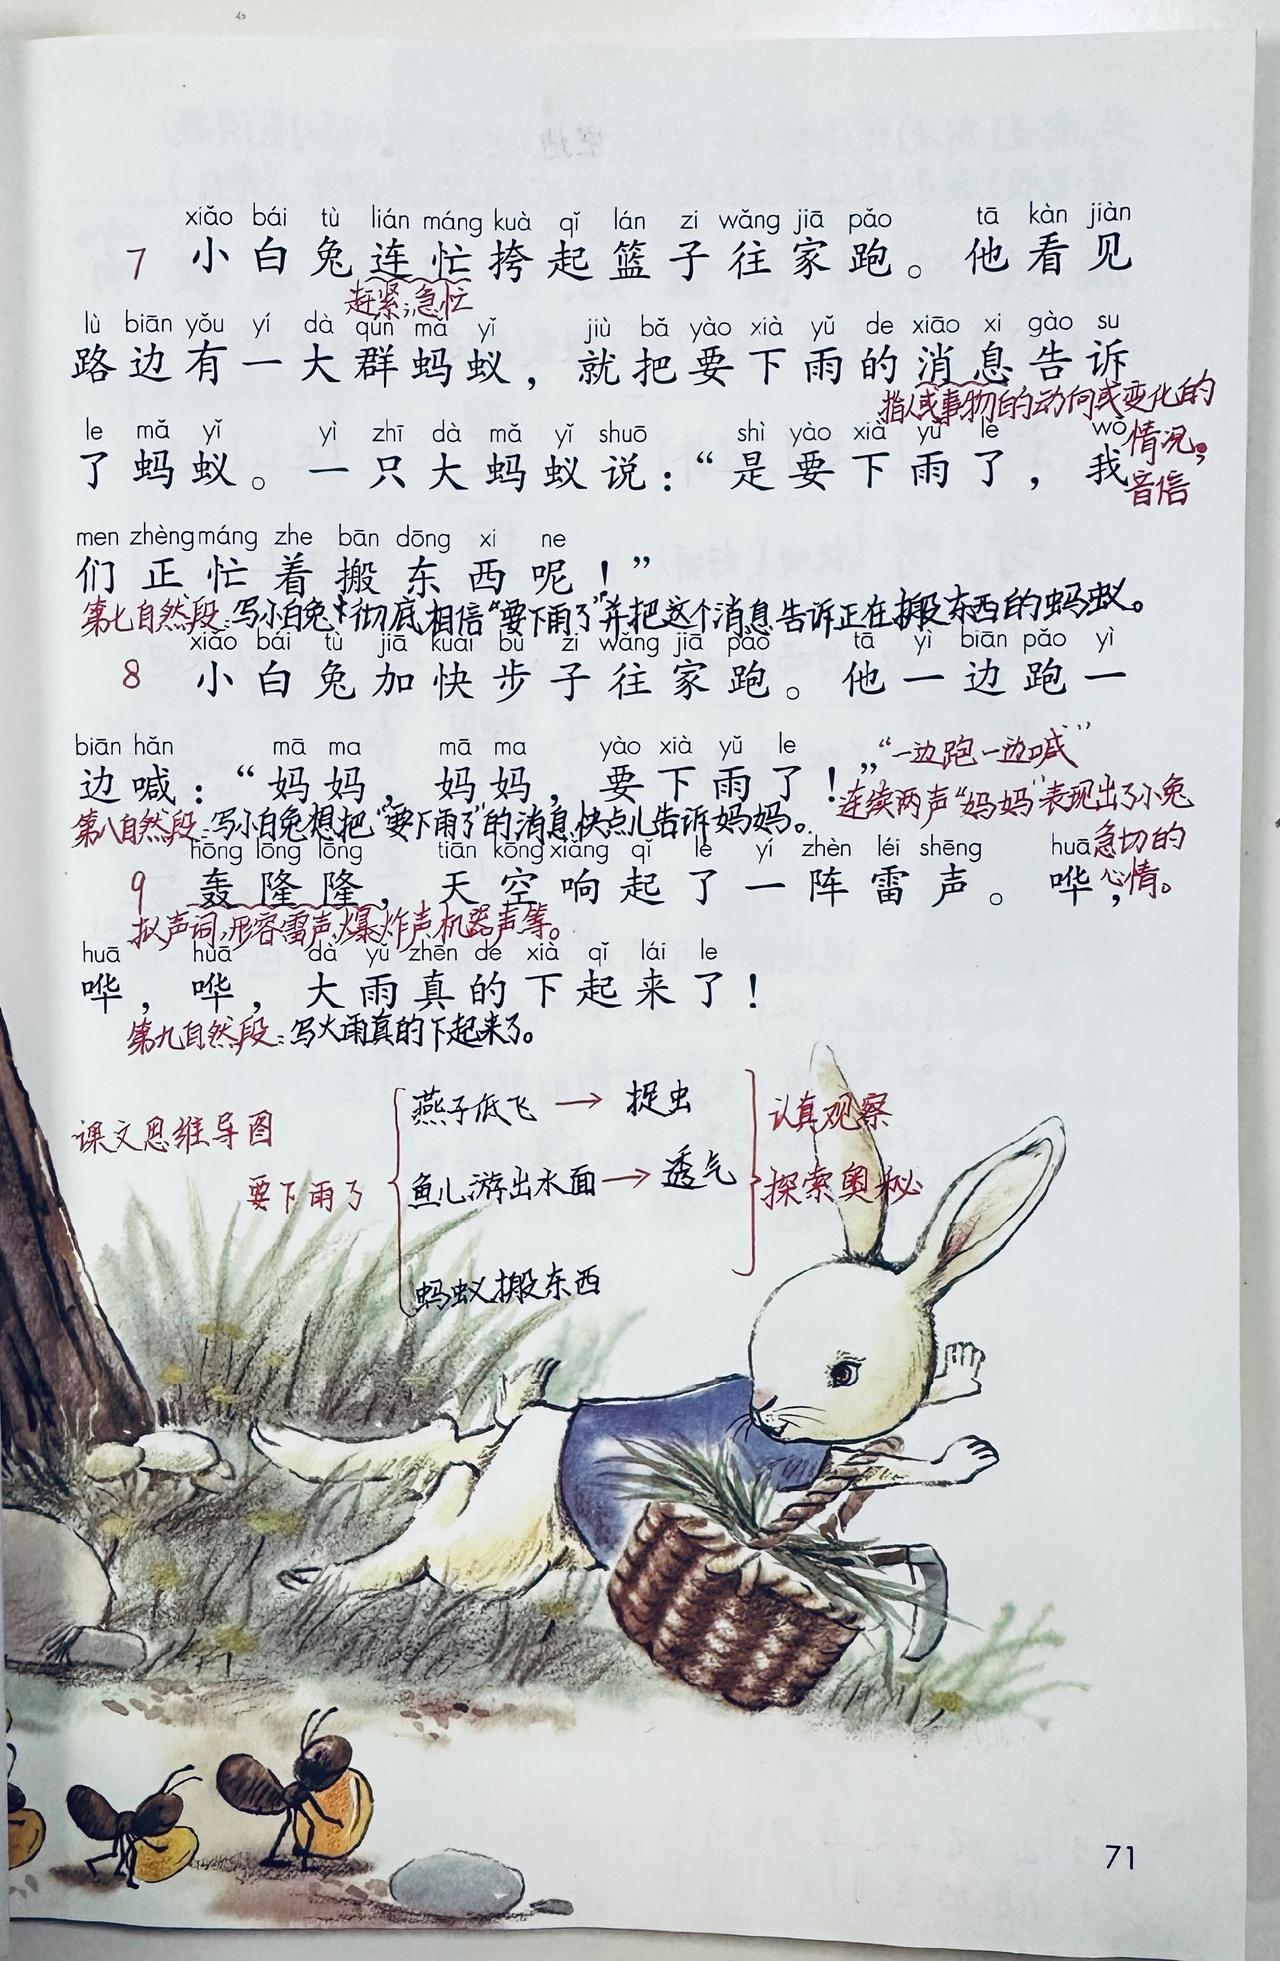 xiǎo bái tù lián máng kuà qǐ lán zi wǎng jiā pǎo tā kàn jiàn
7 小白兔连忙挎起篮子往家跑。他看见
赶紧;急忙
lù biān yǒu yí dà qún mǎ yǐ jiù bǎ yào xià yǔ de xiāo xi gào su
路边有一大群蚂蚁，就把要下雨的消息告诉
指人或事物的动向或变化的
情况;
音信
le mǎ yǐ yì zhī dà mǎ yǐ shuō shì yào xià yǔ le wǒ
了蚂蚁。一只大蚂蚁说：“是要下雨了，我
men zhèng máng zhe bān dōng xi ne
们正忙着搬东西呢！”
第七自然段:写小白兔彻底相信“要下雨了”并把这个消息告诉正在搬东西的蚂蚁。
xiǎo bái tù jiā kuài bù zi wǎng jiā pǎo tā yì biān pǎo yì
8 小白兔加快步子往家跑。他一边跑一
biān hǎn mā ma mā ma yào xià yǔ le
边喊：“妈妈，妈妈，要下雨了！”
“一边跑一边喊”
连续两声“妈妈”表现出了小兔
急切的
心情。
第八自然段:写小白兔想把“要下雨了”的消息快点儿告诉妈妈。
hōng lōng lōng tiān kōng xiǎng qǐ le yí zhèn léi shēng huā
9 轰隆隆，天空响起了一阵雷声。哗，
拟声词,形容雷声、爆炸声、机器声等。
huā huā dà yǔ zhēn de xià qǐ lái le
哗，哗，大雨真的下起来了！
第九自然段:写大雨真的下起来了。
课文思维导图
要下雨了
燕子低飞→捉虫
鱼儿游出水面→透气
蚂蚁搬东西
认真观察
探索奥秘
71